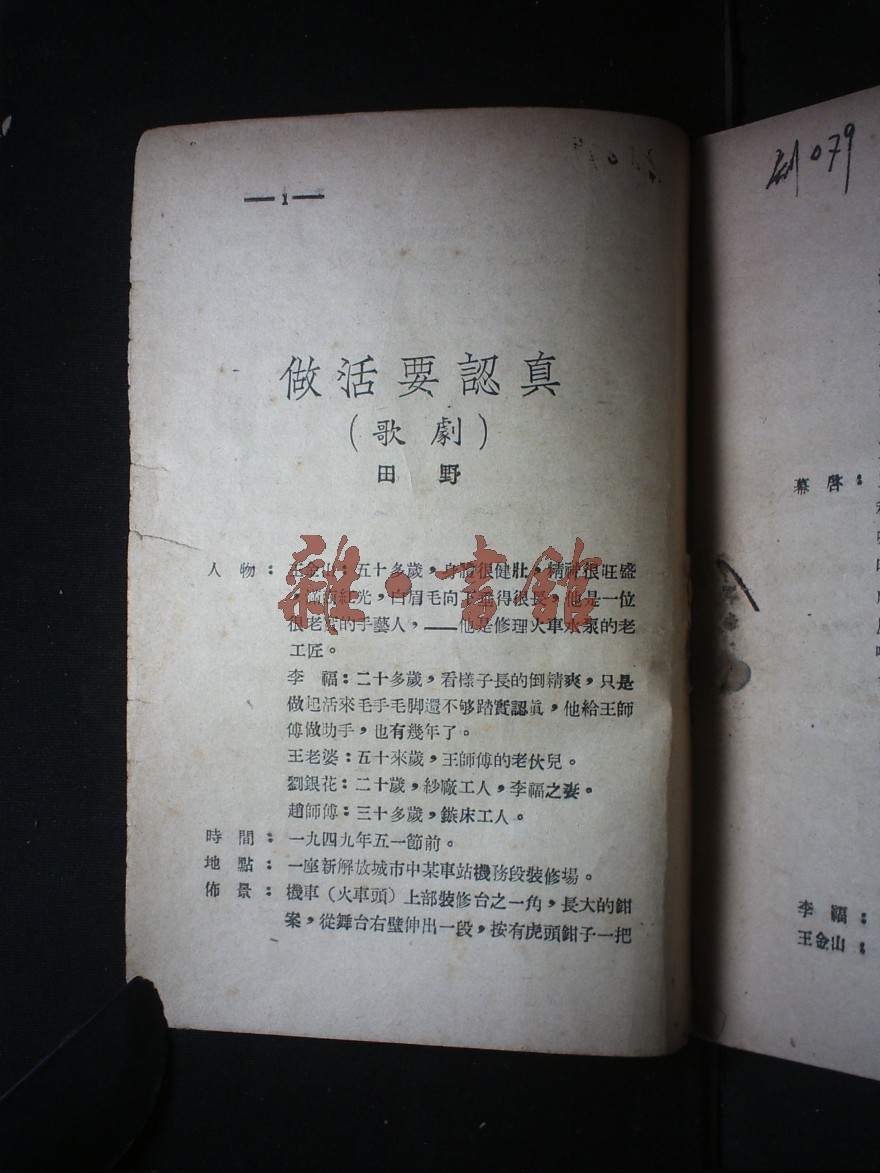 — 1 —
做活要認真
（歌劇）
田野
人物：王金山：五十多歲，身體很健壯，精神很旺盛
，滿頭紅光，白眉毛向下垂得很長，他是一位
很老實的手藝人，——他是修理火車水泵的老
工匠。
李福：二十多歲，看樣子長的倒精爽，只是
做起活來毛手毛脚還不够踏實認眞，他給王師
傅做助手，也有幾年了。
王老婆：五十來歲，王師傅的老伙兒。
劉銀花：二十歲，紗廠工人，李福之妻。
趙師傅：三十多歲，鏇床工人。
時間：一九四九年五一節前。
地點：一座新解放城市中某車站機務段裝修場。
佈景：機車（火車頭）上部裝修台之一角，長大的鉗
案，從舞台右壁伸出一段，按有虎頭鉗子一把
雜·書館
079
幕啓：
李福：
王金山：